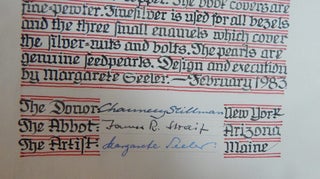 copper. The book covers are
are pewter. Finesilver is used for all bezels
and the three small enamels which cover
the silver-nuts and bolts. The pearls are
genuine seedpearls. Design and execution
by Margarete Seeler. — February 1983
The Donor Chauncey Stillman New York
The Abbot: James R. Strait Arizona
The Artist: Margarete Seeler. Maine